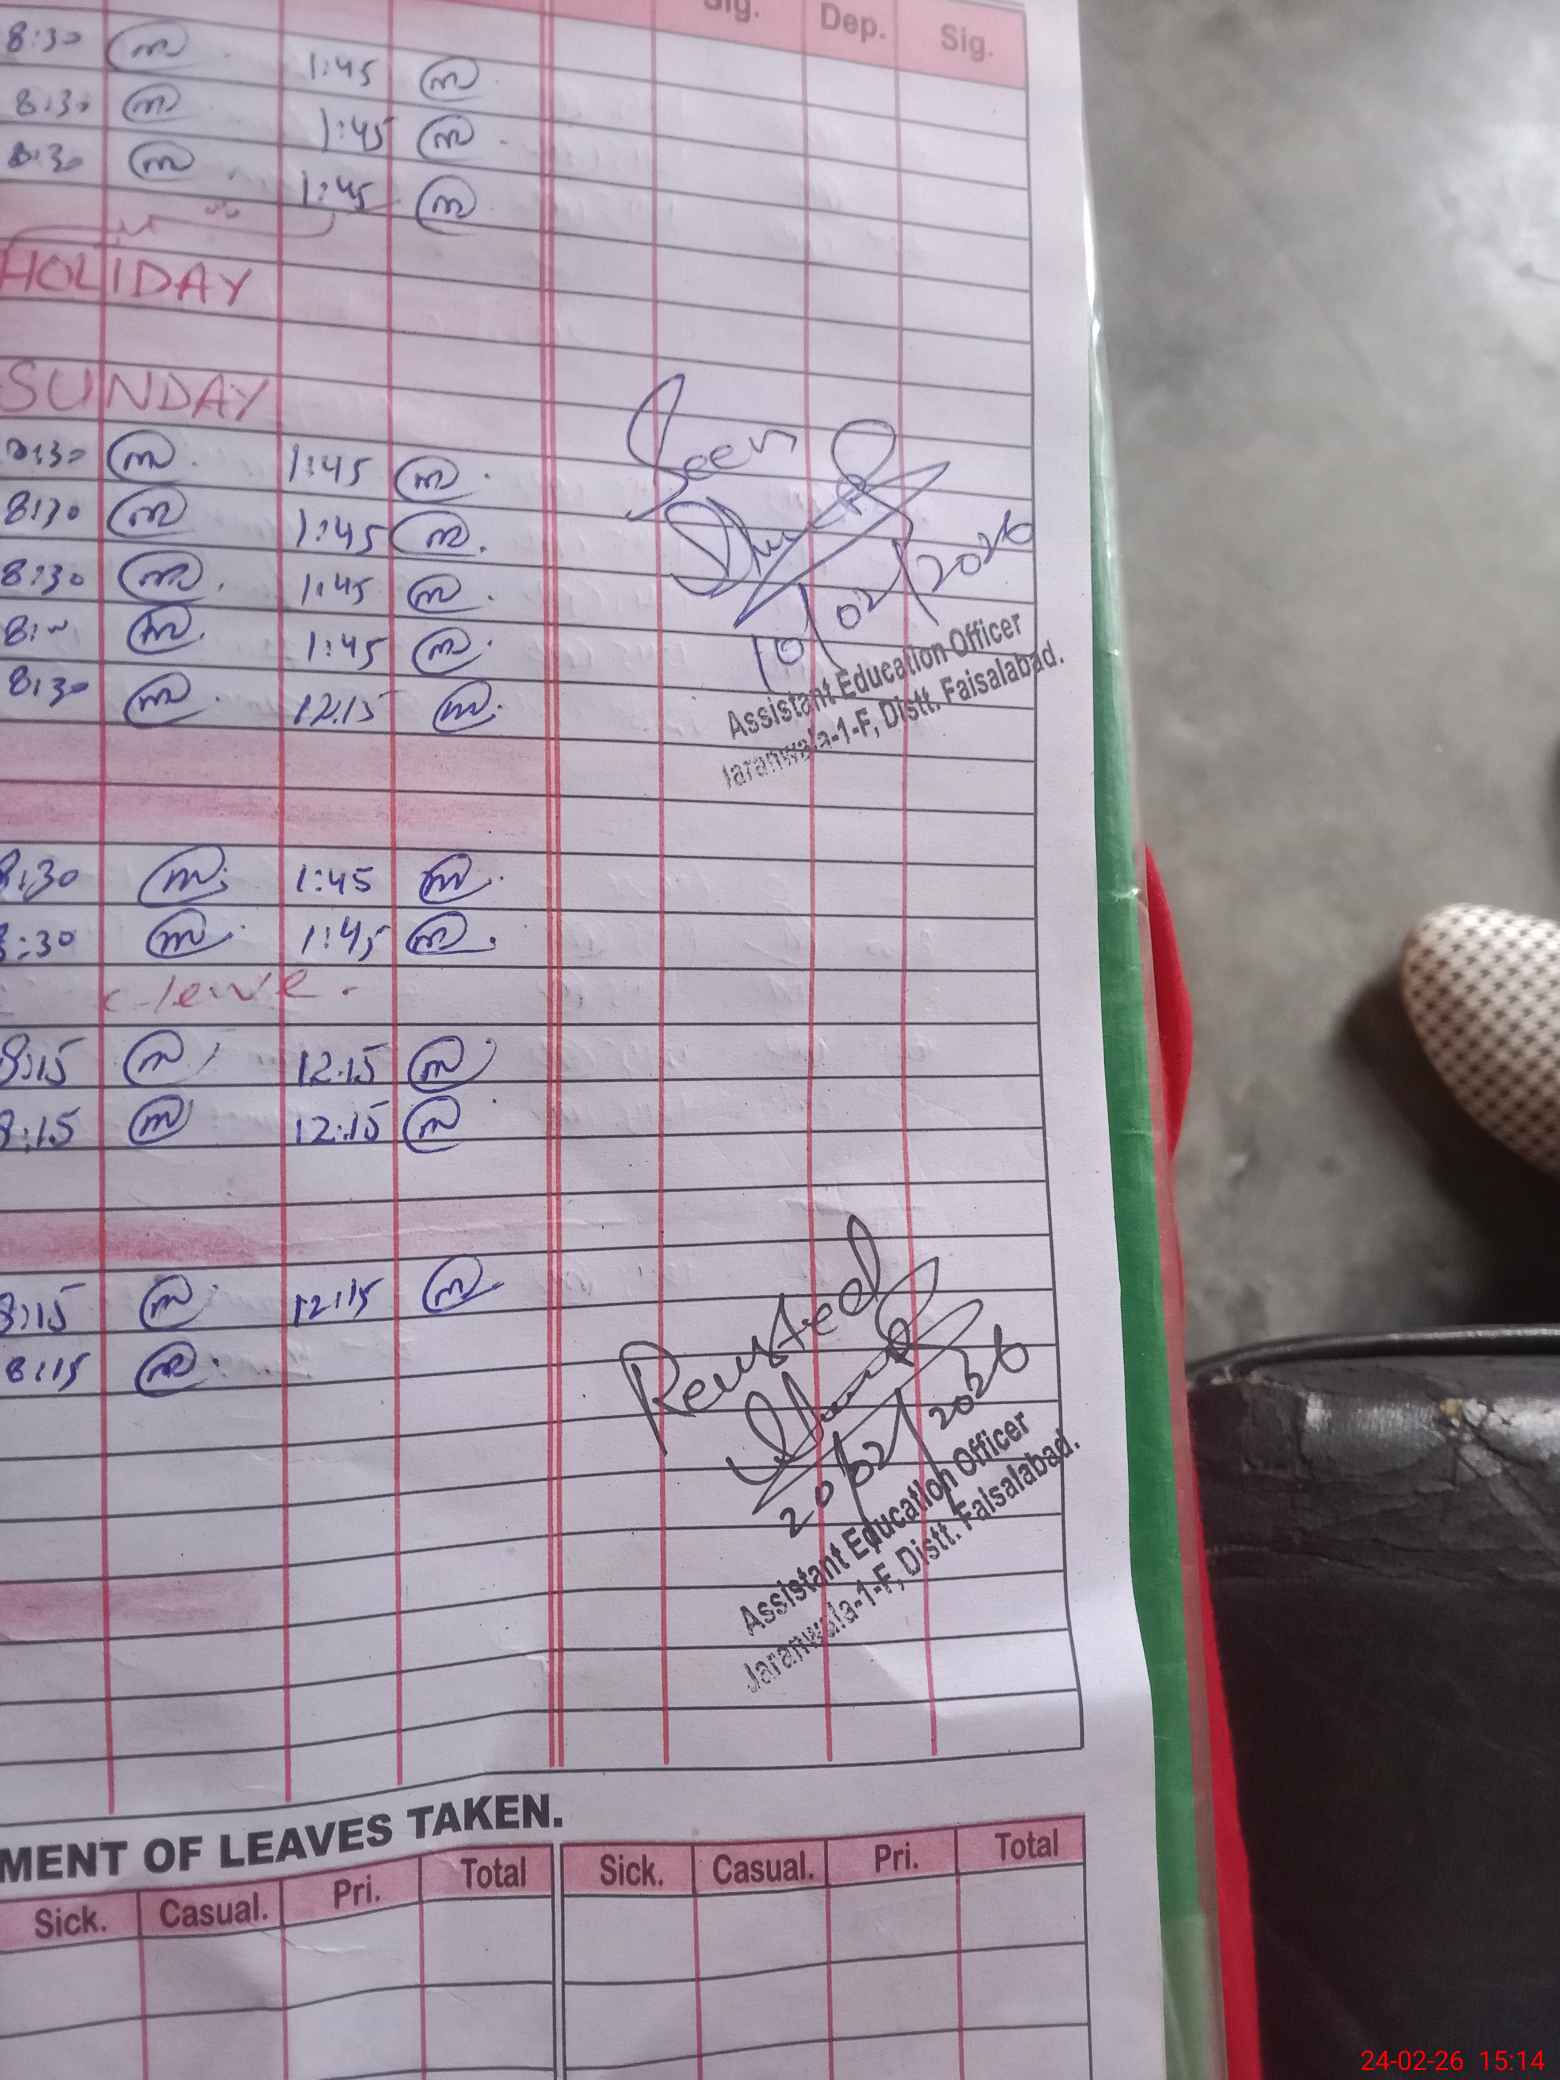 Sig. Dep. Sig.
8:30 1:45
8:30 1:45
8:30 1:45
HOLIDAY
SUNDAY
8:30 1:45
8:30 1:45
8:30 1:45
8:30 1:45
8:30 12.15
Seen
10/02/2026
Assistant Education Officer
Jaranwala-1-F, Distt. Faisalabad.
8:30 1:45
8:30 1:45
leave.
8:15 12.15
8:15 12:15
8:15 12:15
8:15
20/02/2026
Assistant Education Officer
Jaranwala-1-F, Distt. Faisalabad.
MENT OF LEAVES TAKEN.
Sick. Casual. Pri. Total Sick. Casual. Pri. Total
24-02-26 15:14